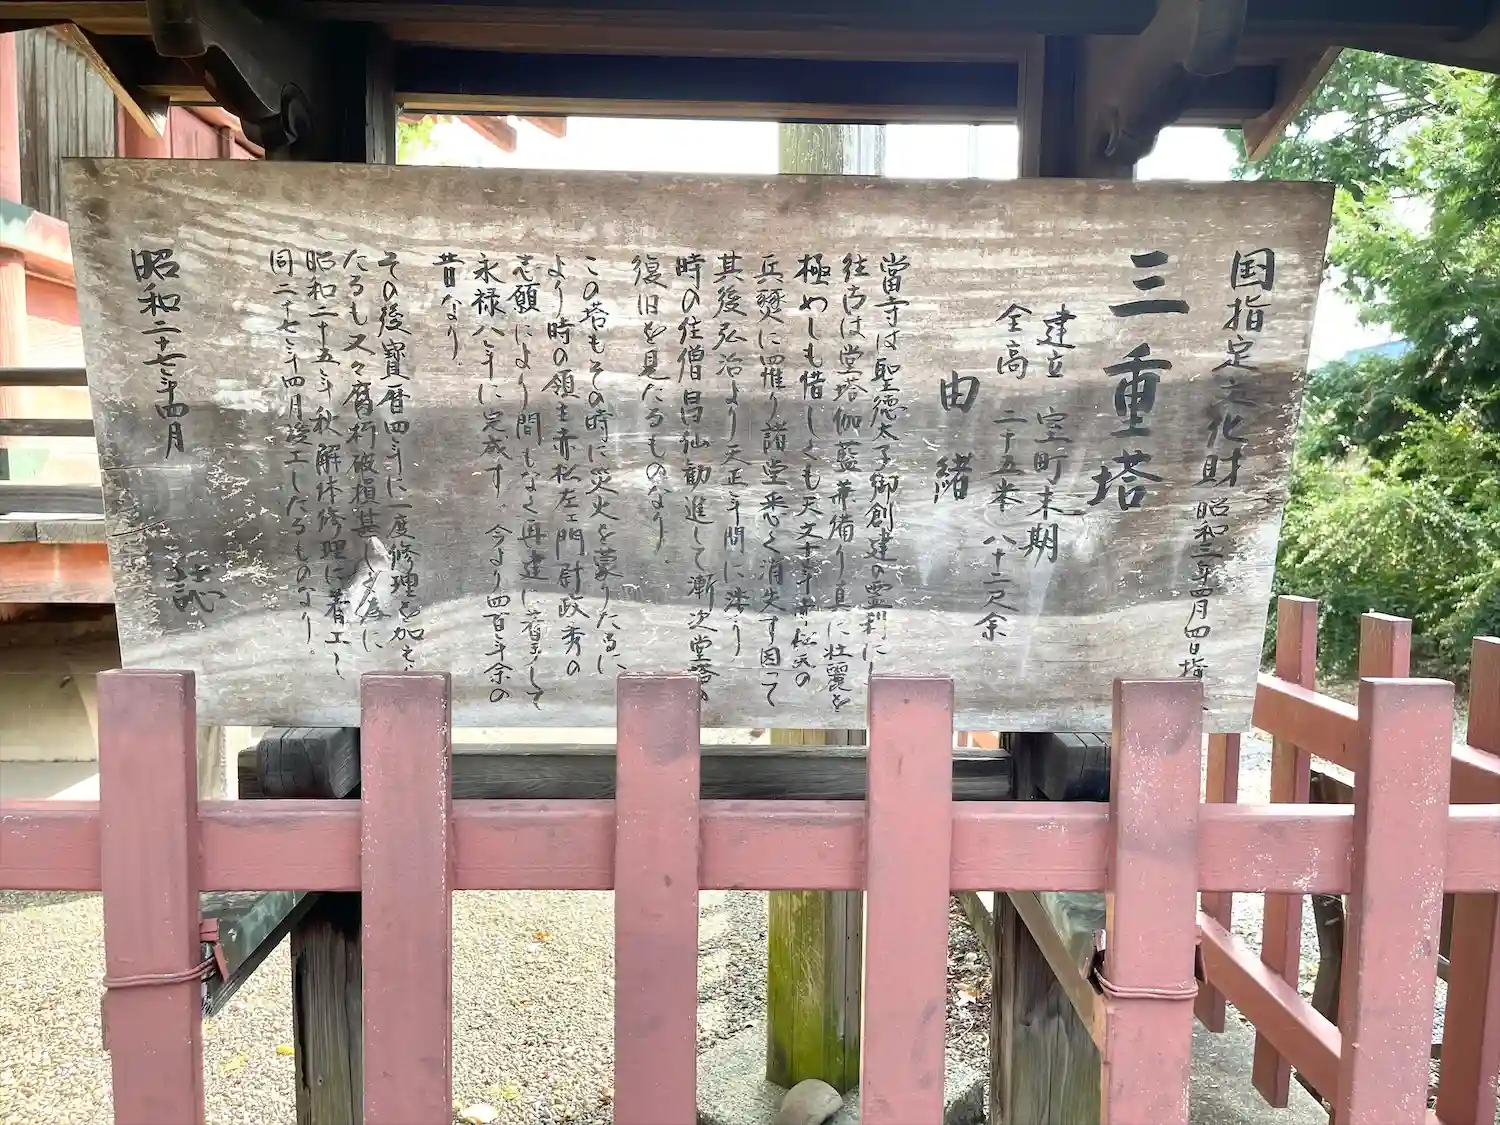 国指定文化財 昭和三年四月四日指
三重塔
建立 室町末期
全高 二十五米 八十二尺余
由緒
當寺は聖徳太子御創建の霊刹にし
往古は堂塔伽藍兼備り真に壮麗を
極めしも惜しくも天文十年赤松氏の
兵燹に罹り諸堂悉く消失す因って
其後弘治より天正年間に渉り
時の住僧昌仙勧進して漸次堂塔の
復旧を見たるものなり
この塔もその時に災火を蒙りたるに
より時の領主赤松左ヱ門尉政秀の
志願により間もなく再建に着手して
永禄八年に完成す。今より四百年余の
昔なり。
その後寶暦四年に一度修理を加え
たるも又々腐朽破損甚し
昭和二十五年秋解体修理に着工し
同二十七年四月竣工したるものなり。
昭和二十七年四月